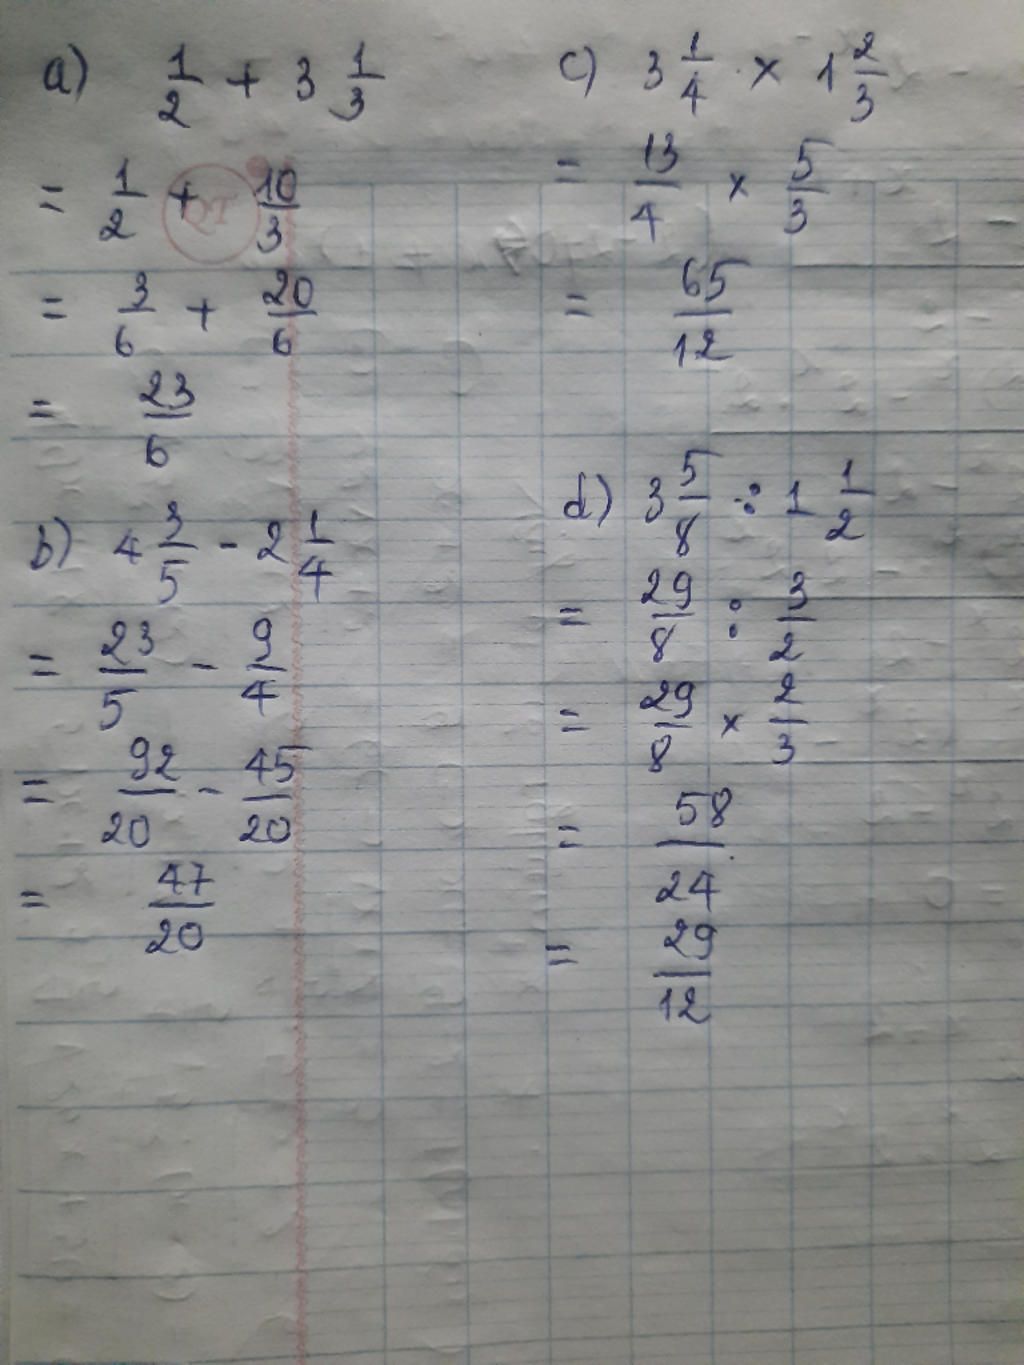 a) 1/2 + 3 1/3
= 1/2 + 10/3
= 3/6 + 20/6
= 23/6
b) 4 3/5 - 2 1/4
= 23/5 - 9/4
= 92/20 - 45/20
= 47/20
c) 3 1/4 × 1 2/3
= 13/4 × 5/3
= 65/12
d) 3 5/8 ÷ 1 1/2
= 29/8 : 3/2
= 29/8 × 2/3
= 58/24
= 29/12